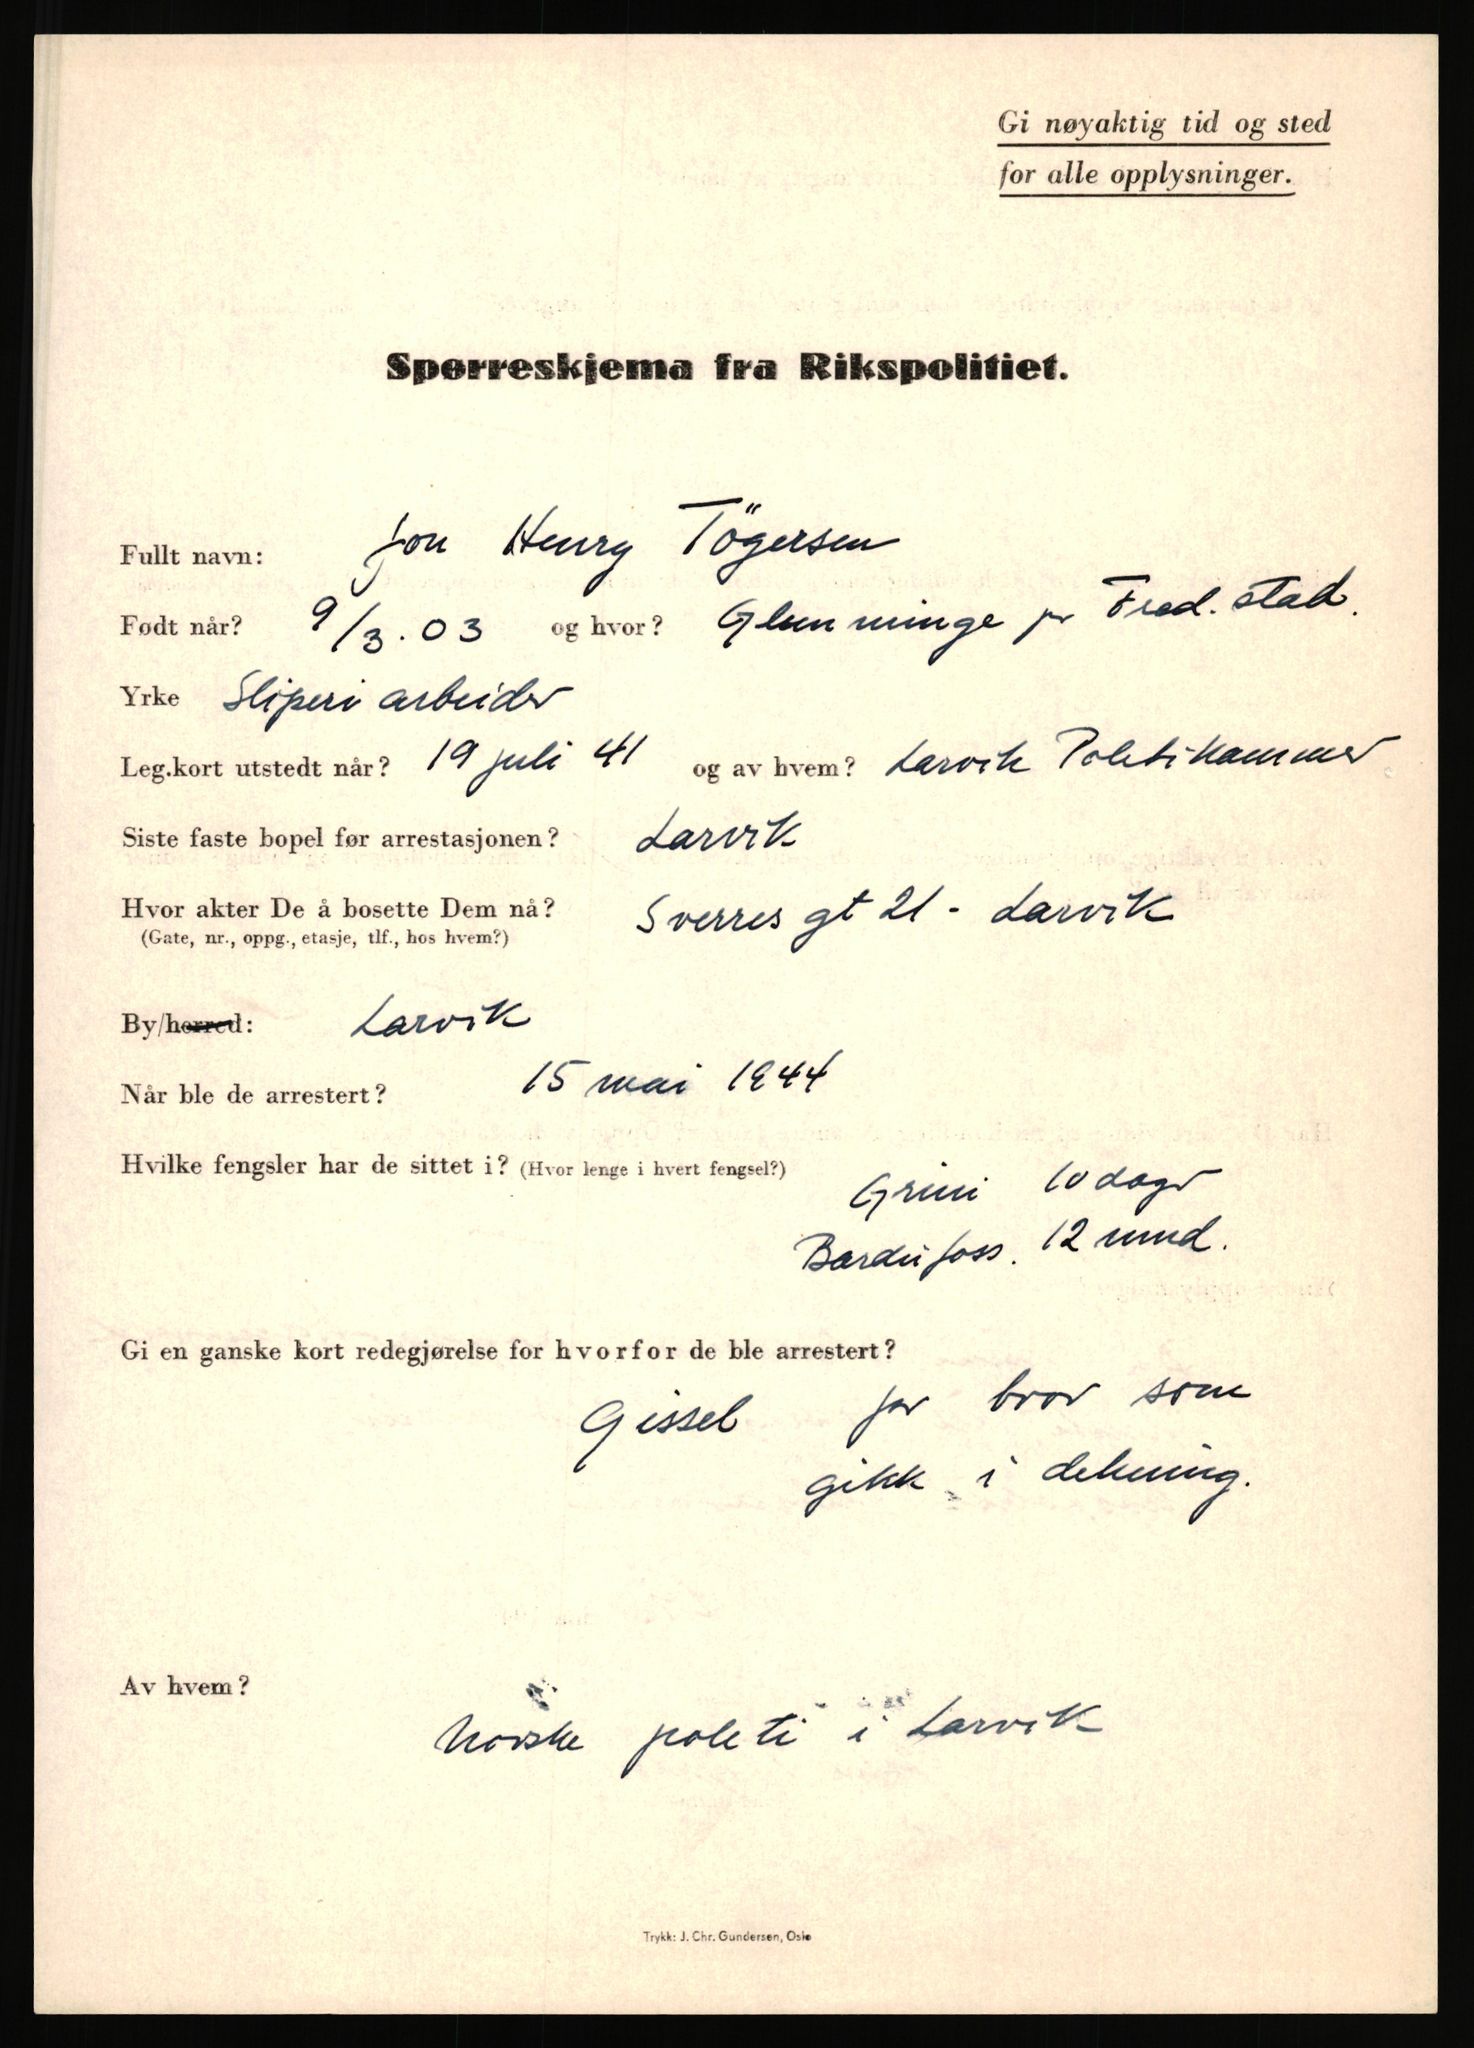 Gi nøyaktig tid og sted
for alle opplysninger.
Spørreskjema fra Rikspolitiet.
Fullt navn: Jon Henry Tögersen
Født når? 9/3.03 og hvor? Glemminge pr Fred.stad.
Yrke Sliperi arbeider
Leg.kort utstedt når? 19 juli 41 og av hvem? Larvik Politikammer
Siste faste bopel før arrestasjonen? Larvik
Hvor akter De å bosette Dem nå? Sverres gt 21 - Larvik
(Gate, nr., oppg., etasje, tlf., hos hvem?)
By/herred: Larvik
Når ble de arrestert? 15 mai 1944
Hvilke fengsler har de sittet i? (Hvor lenge i hvert fengsel?)
Grini 10 dager
Bardufoss. 12 mnd.
Gi en ganske kort redegjørelse for hvorfor de ble arrestert?
Gissel for bror som
gikk i dekning.
Av hvem?
Norske poleti i Larvik
Trykk: J. Chr. Gundersen, Oslo